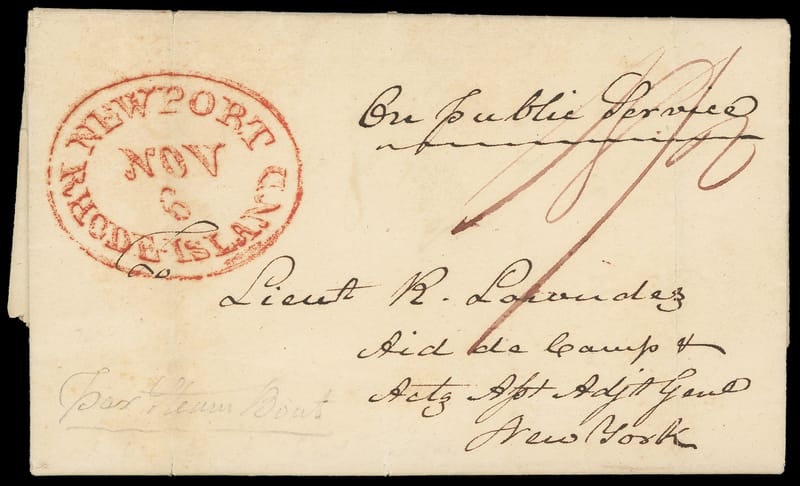 NEWPORT
NOV
6
RHODE-ISLAND
On public Service
To
Lieut R. Lowndez
Aid de Camp &
Actg Asst Adjt Genl
New York
per Steam Boat